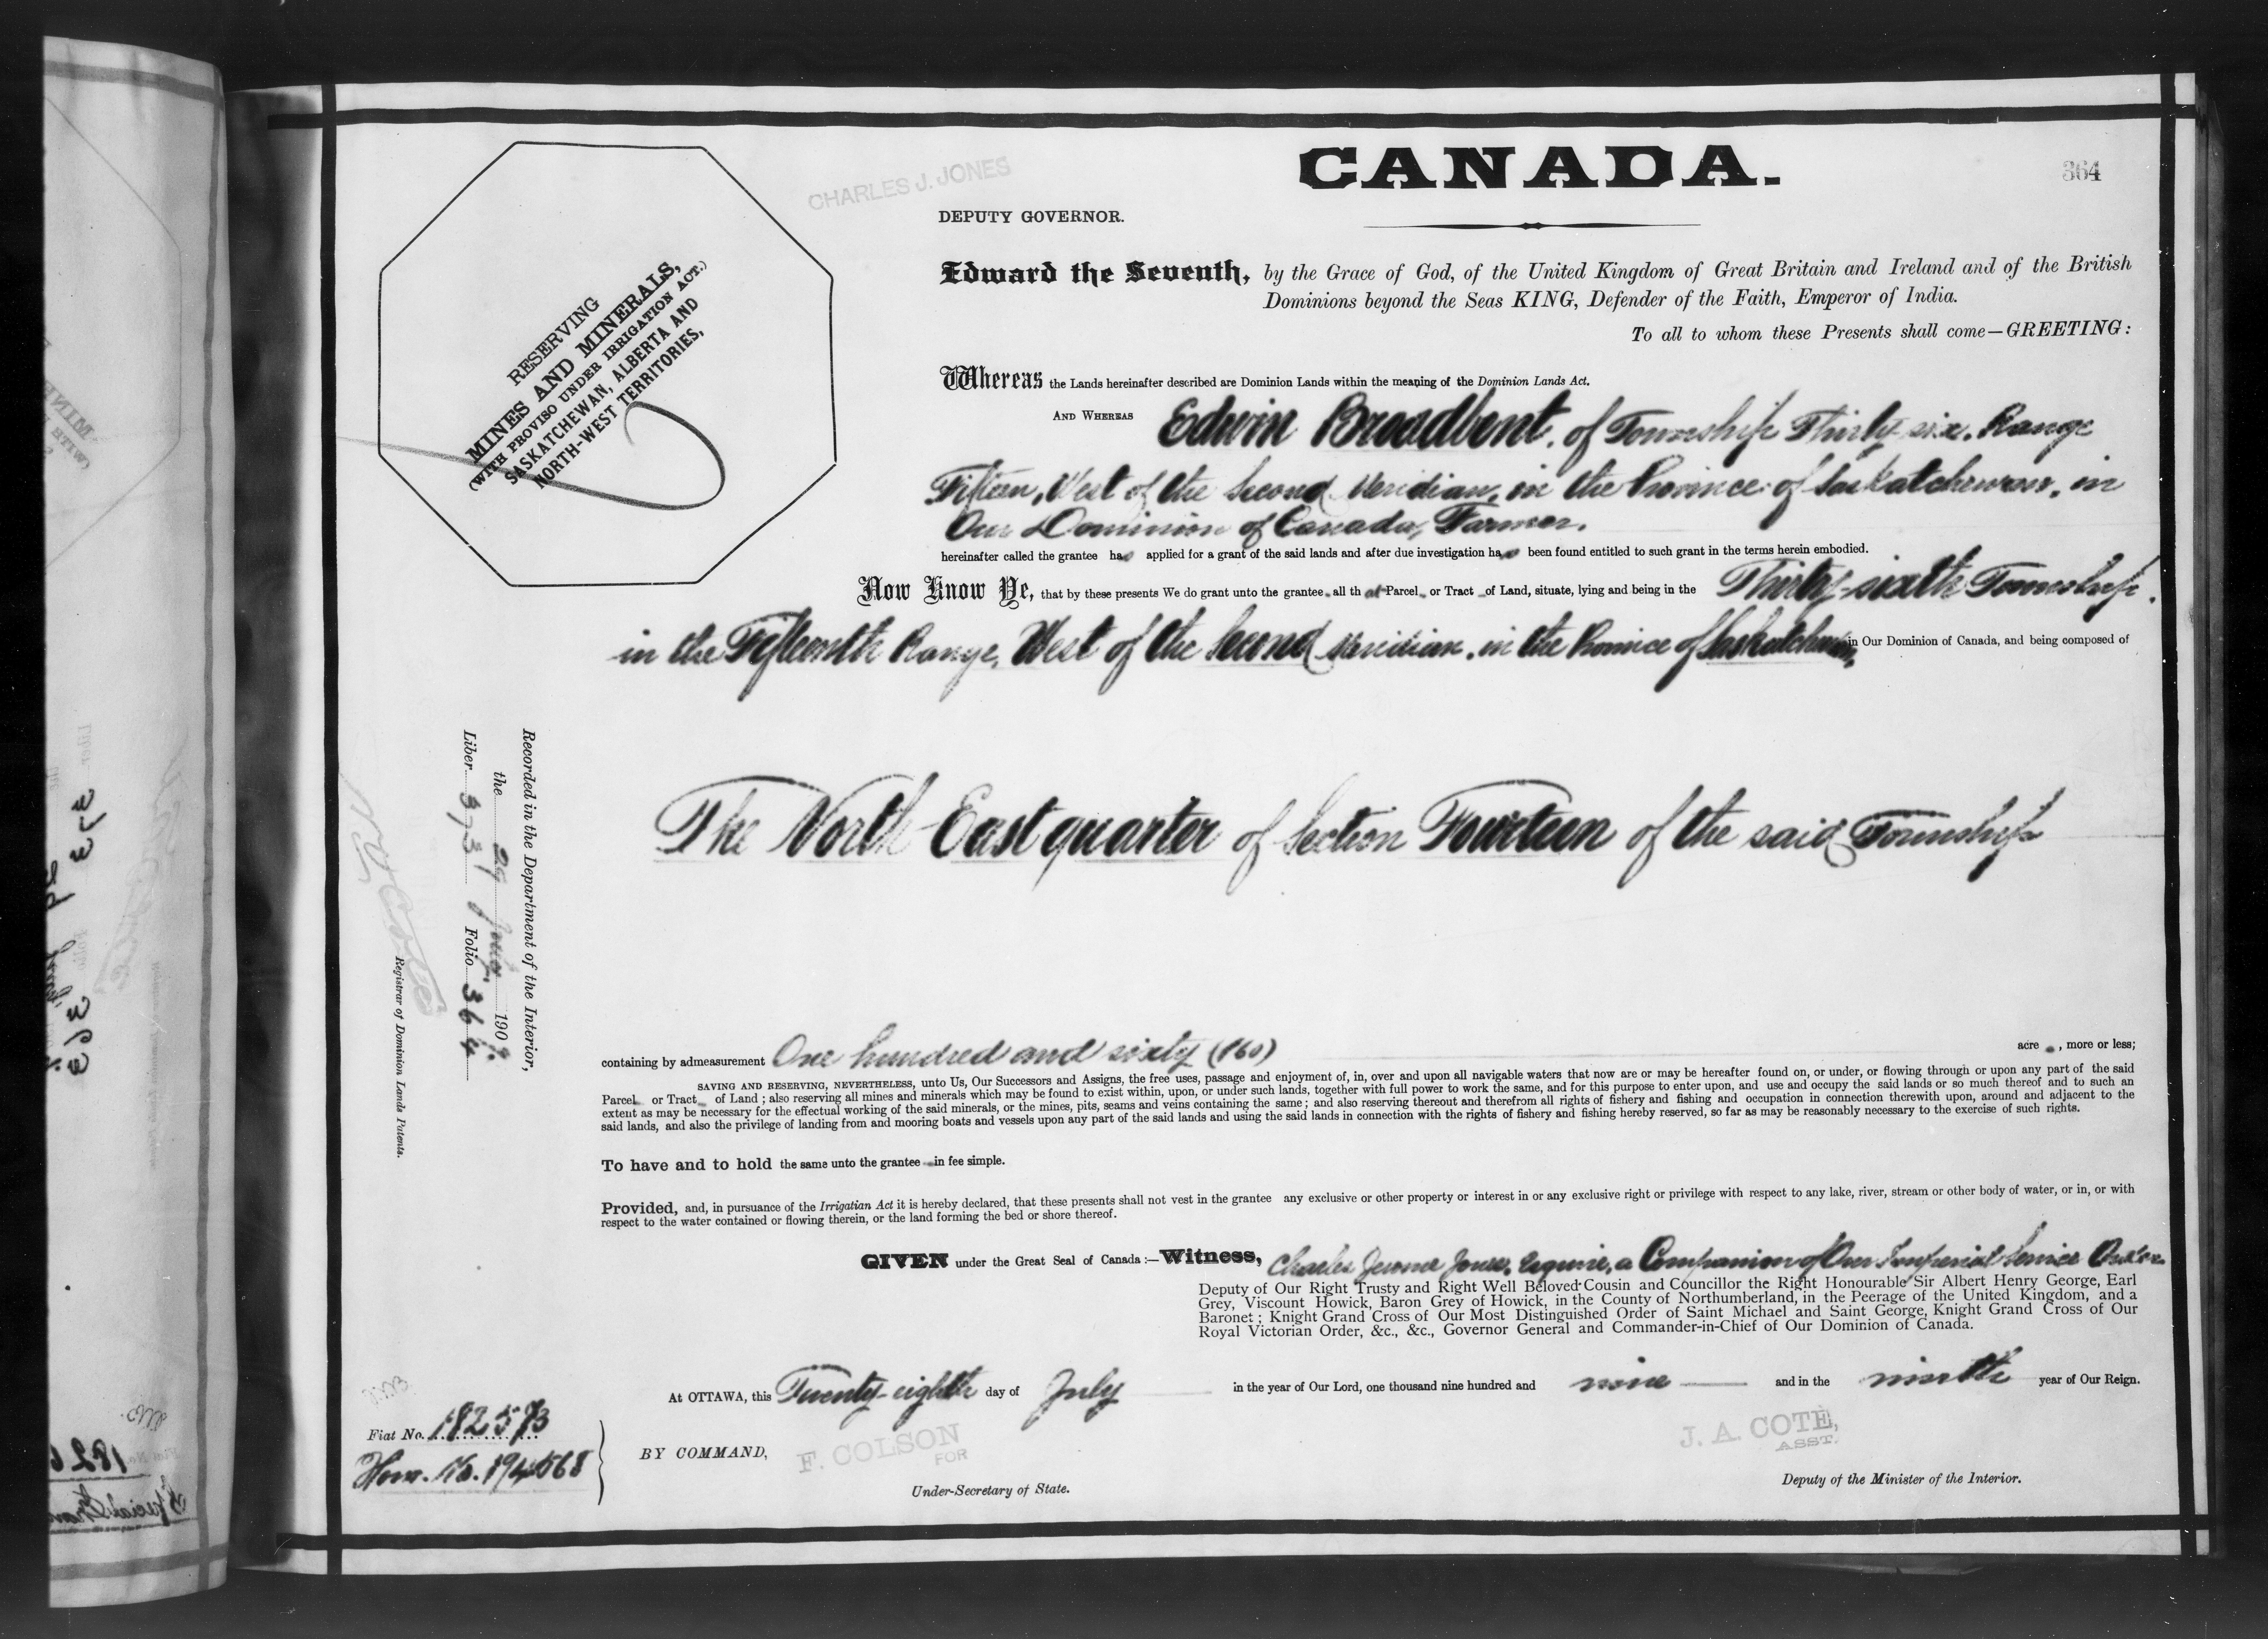 CANADA.
364
CHARLES J. JONES
DEPUTY GOVERNOR.
RESERVING
MINES AND MINERALS,
(WITH PROVISO UNDER IRRIGATION ACT.)
SASKATCHEWAN, ALBERTA AND
NORTH-WEST TERRITORIES,
Edward the Seventh, by the Grace of God, of the United Kingdom of Great Britain and Ireland and of the British
Dominions beyond the Seas KING, Defender of the Faith, Emperor of India.
To all to whom these Presents shall come—GREETING:
Whereas the Lands hereinafter described are Dominion Lands within the meaning of the Dominion Lands Act.
AND WHEREAS Edwin Broadbent, of Township Thirty-six, Range
Fifteen, West of the Second Meridian, in the Province of Saskatchewan, in
Our Dominion of Canada, Farmer.
hereinafter called the grantee has applied for a grant of the said lands and after due investigation has been found entitled to such grant in the terms herein embodied.
Now Know Ye, that by these presents We do grant unto the grantee all that Parcel or Tract of Land, situate, lying and being in the Thirty-sixth Township,
in the Fifteenth Range, West of the Second Meridian, in the Province of Saskatchewan, in Our Dominion of Canada, and being composed of
The North East quarter of Section Fourteen of the said Township
Recorded in the Department of the Interior,
the 29 July 1909.
Liber 373 Folio 364
N. O. Coté
Registrar of Dominion Lands Patents.
containing by admeasurement One hundred and sixty (160) acres, more or less;
SAVING AND RESERVING, NEVERTHELESS, unto Us, Our Successors and Assigns, the free uses, passage and enjoyment of, in, over and upon all navigable waters that now are or may be hereafter found on, or under, or flowing through or upon any part of the said
Parcel or Tract of Land; also reserving all mines and minerals which may be found to exist within, upon, or under such lands, together with full power to work the same, and for this purpose to enter upon, and use and occupy the said lands or so much thereof and to such an
extent as may be necessary for the effectual working of the said minerals, or the mines, pits, seams and veins containing the same; and also reserving thereout and therefrom all rights of fishery and fishing and occupation in connection therewith upon, around and adjacent to the
said lands, and also the privilege of landing from and mooring boats and vessels upon any part of the said lands and using the said lands in connection with the rights of fishery and fishing hereby reserved, so far as may be reasonably necessary to the exercise of such rights.
To have and to hold the same unto the grantee in fee simple.
Provided, and, in pursuance of the Irrigatian Act it is hereby declared, that these presents shall not vest in the grantee any exclusive or other property or interest in or any exclusive right or privilege with respect to any lake, river, stream or other body of water, or in, or with
respect to the water contained or flowing therein, or the land forming the bed or shore thereof.
GIVEN under the Great Seal of Canada:—Witness, Charles Jerome Jones, Esquire, a Companion of Our Imperial Service Order
Deputy of Our Right Trusty and Right Well Beloved Cousin and Councillor the Right Honourable Sir Albert Henry George, Earl
Grey, Viscount Howick, Baron Grey of Howick, in the County of Northumberland, in the Peerage of the United Kingdom, and a
Baronet; Knight Grand Cross of Our Most Distinguished Order of Saint Michael and Saint George, Knight Grand Cross of Our
Royal Victorian Order, &c., &c., Governor General and Commander-in-Chief of Our Dominion of Canada.
At OTTAWA, this Twenty-eighth day of July in the year of Our Lord, one thousand nine hundred and nine and in the ninth year of Our Reign.
Fiat No. 182573
Hom. No. 194568
BY COMMAND,
F. COLSON
FOR
Under-Secretary of State.
J. A. COTE,
ASST.
Deputy of the Minister of the Interior.